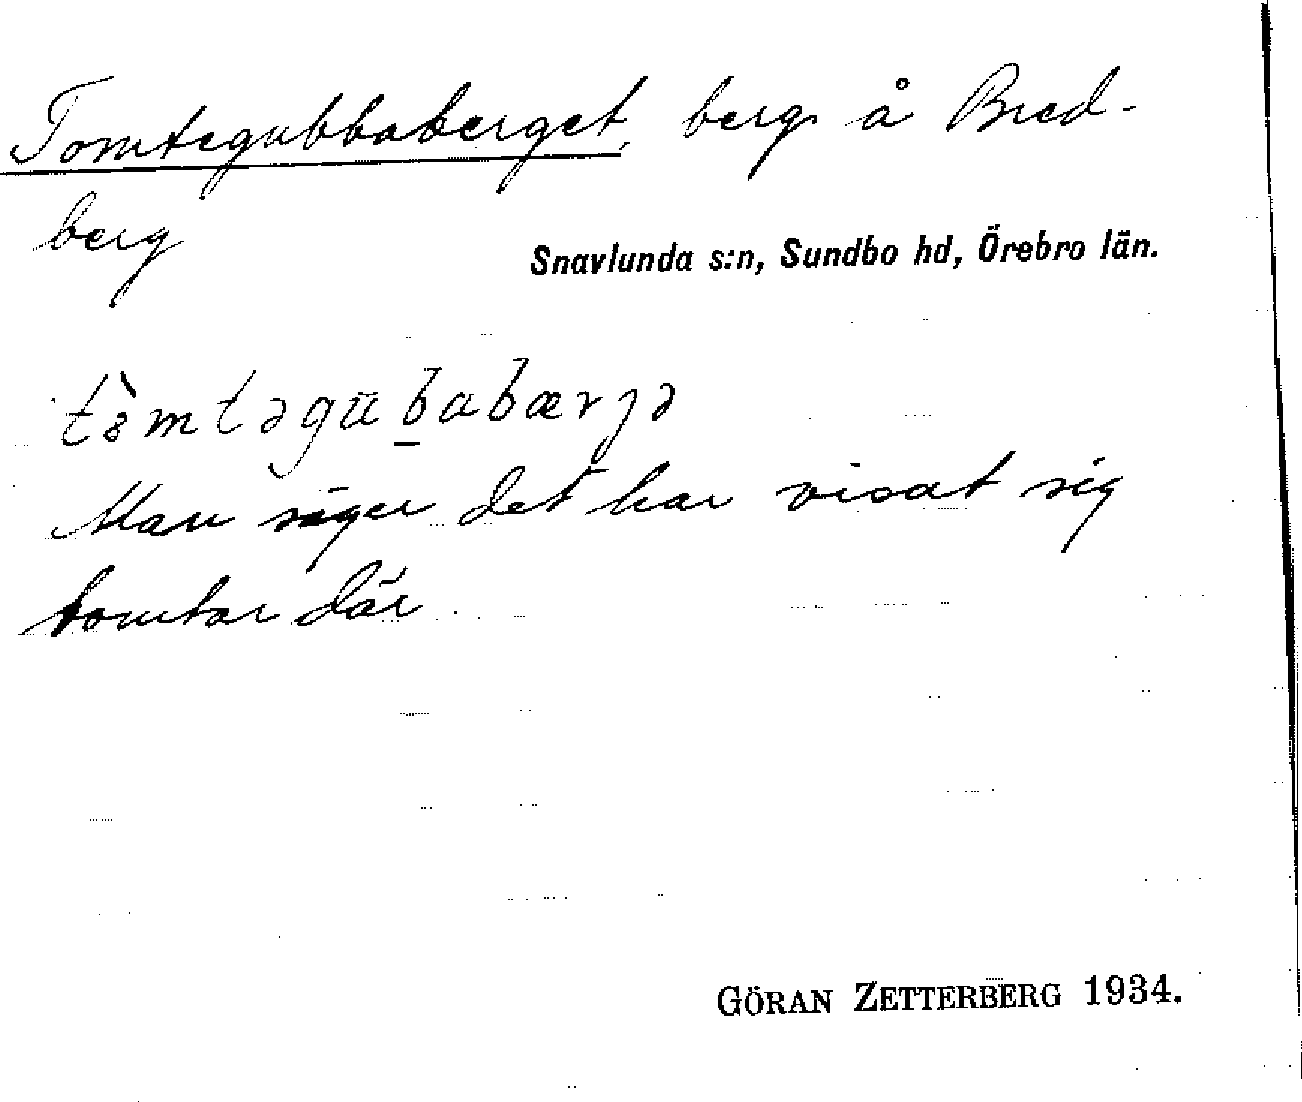 Tomtegubbaberget, berg å Bred-
berg
Snavlunda s:n, Sundbo hd, Örebro län.
Man säger det har visat sig
tomtar där
GÖRAN ZETTERBERG 1934.